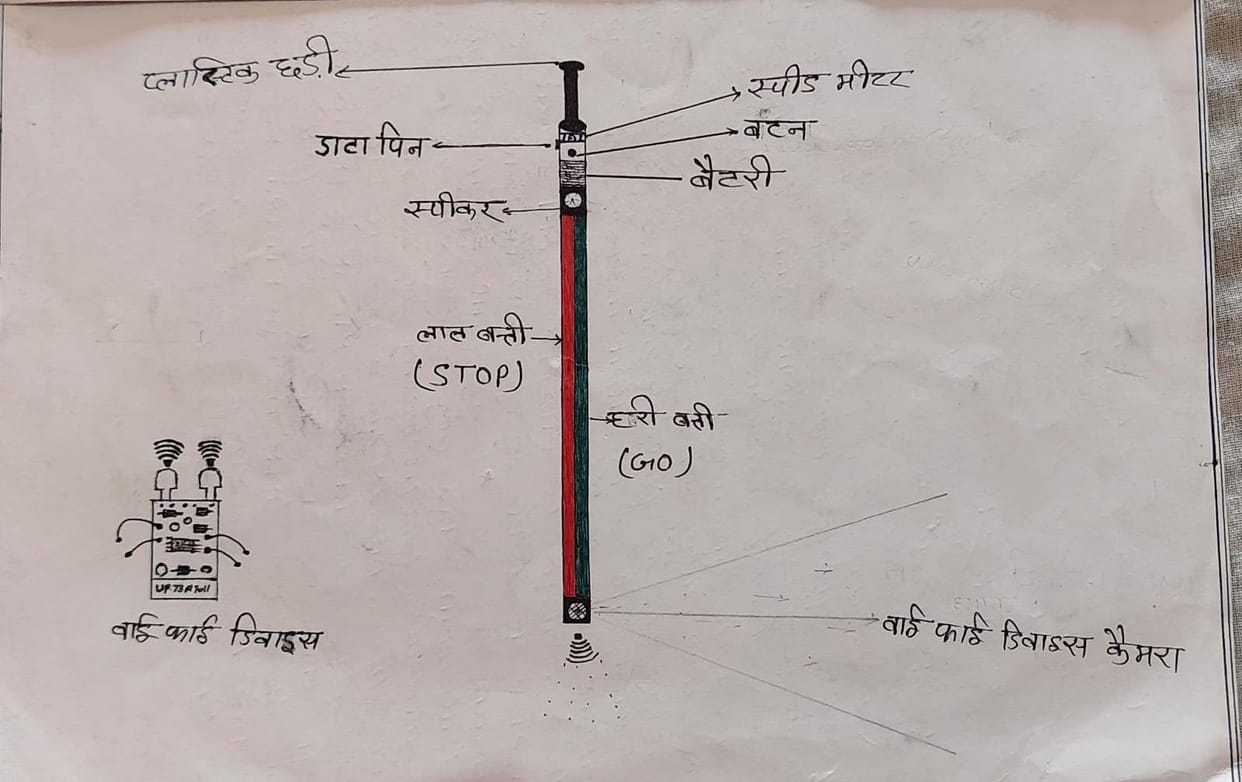 प्लास्टिक छड़ी
स्पीड मीटर
बटन
डाटा पिन
बैटरी
स्पीकर
लाल बत्ती
(STOP)
हरी बत्ती
(GO)
वाई फाई डिवाइस
वाई फाई डिवाइस कैमरा